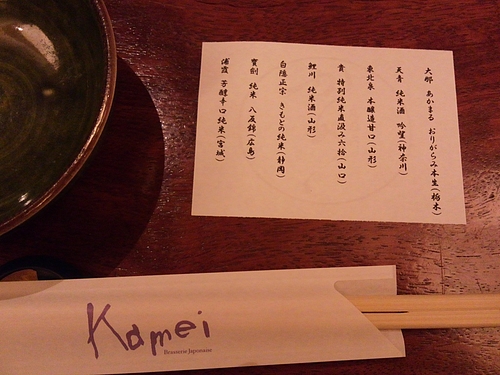 大那 あかまる おりがらみ本生(栃木)
天青 純米酒 吟望(神奈川)
東北泉 本醸造甘口(山形)
貴 特別純米直汲み六拾(山口)
鯉川 純米酒(山形)
白隠正宗 きもとの純米(静岡)
寳剣 純米 八反錦(広島)
浦霞 芳醇辛口純米(宮城)
Kamei
Brasserie Japonaise